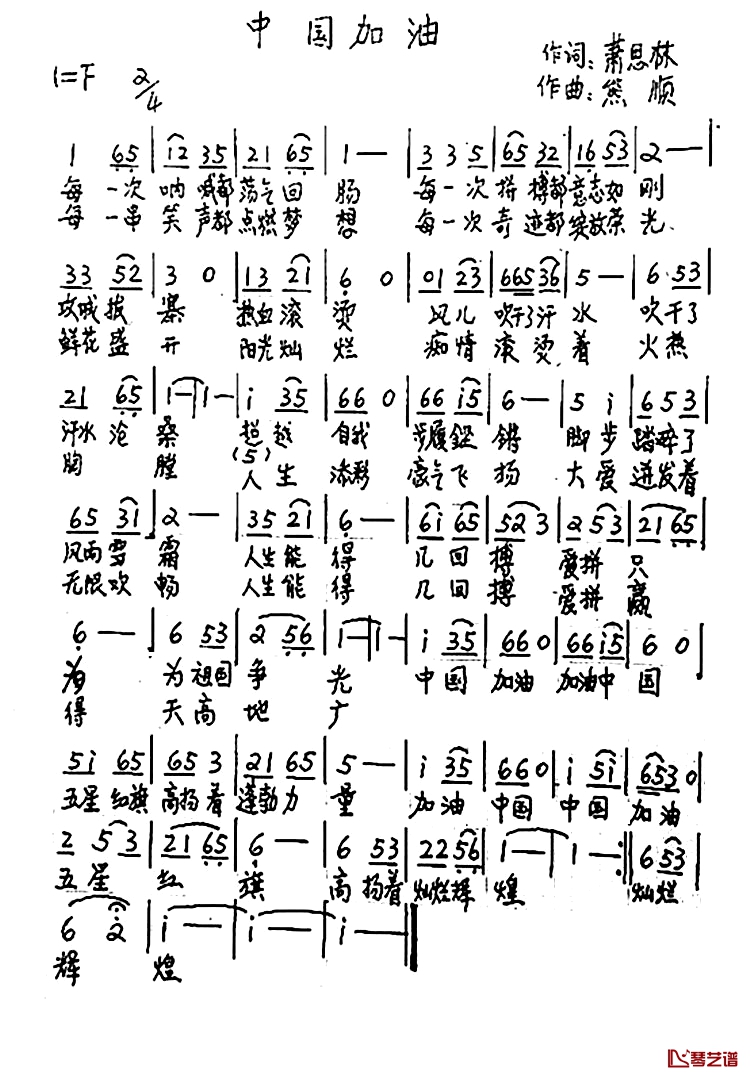 中国加油
作词:萧思林
1=F 2/4
作曲:熊顺
1 65 | 12 35 | 21 65 | 1 — | 3 3 5 | 65 32 | 16 53 | 2 — |
每一次呐喊都荡气回肠 每一次拼搏都意志如刚
每一串笑声都点燃梦想 每一次奇迹都绽放荣光
33 52 | 3 0 | 13 21 | 6 0 | 01 23 | 665 36 | 5 — | 6 53 |
攻城拔寨 热血滚烫 风儿吹干了汗水 吹干了
鲜花盛开 阳光灿烂 痴情滚烫着 火热
21 65 | 1 — | 1 — | i 35 | 66 0 | 66 i5 | 6 — | 5 i | 6 5 3 |
汗水沧桑 超越自我 步履铿锵 脚步踏碎了
(5)
胸膛 人生添彩 豪气飞扬 大爱迸发着
65 31 | 2 — | 35 21 | 6 — | 6i 65 | 52 3 | 2 5 3 | 21 65 |
风雨雪霜 人生能得几回搏 爱拼只
无限欢畅 人生能得几回搏 爱拼赢
6 — | 6 53 | 2 56 | 1 — | 1 — | i 35 | 66 0 | 66 i5 | 6 0 |
为 为祖国争光 中国加油 加油中国
得 天高地广
5i 65 | 65 3 | 21 65 | 5 — | i 35 | 66 0 | i 5i | 653 0 |
五星红旗高扬着蓬勃力量 加油中国 中国加油
2 5 3 | 21 65 | 6 — | 6 53 | 22 56 | 1 — | 1 — :| 6 53 |
五星红旗 高扬着灿烂辉煌 灿烂
6 2 | i — | i — | i — ||
辉煌
琴艺谱